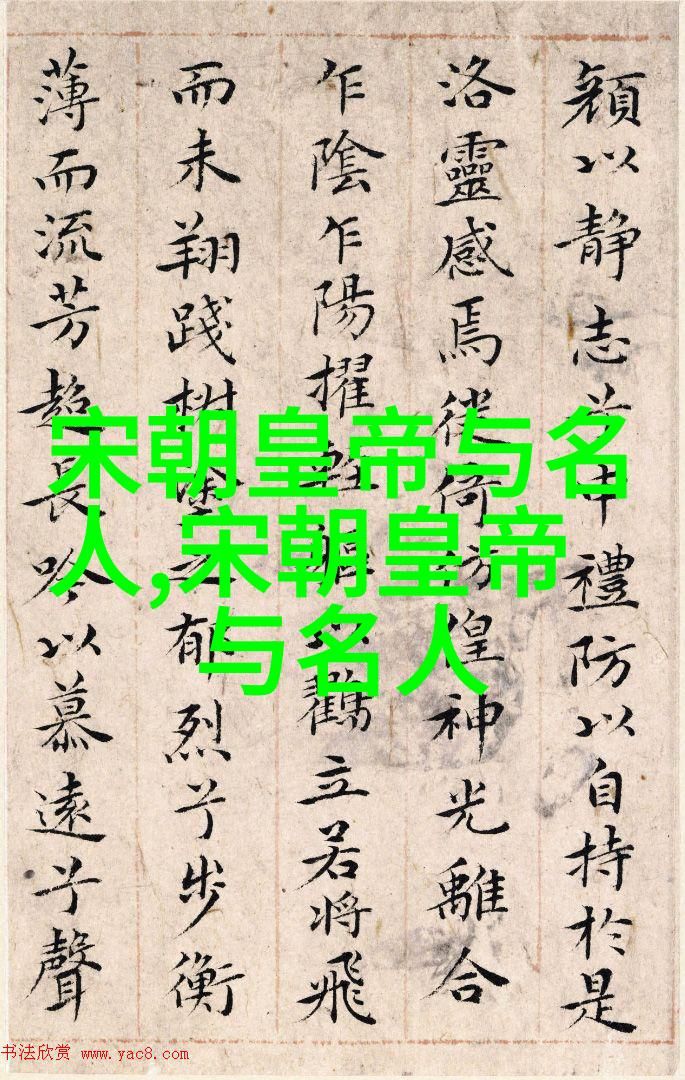 顔以静志兮申禮防以自持於是
洛靈感焉徙倚彷徨神光離合
乍陰乍陽擢輕軀以鶴立若将飛
而未翔踐椒塗之郁烈兮步衡
薄而流芳超長吟以慕遠兮聲
宋朝皇帝与名
人,宋朝皇帝
与名人
书法欣赏 www.yac8.com